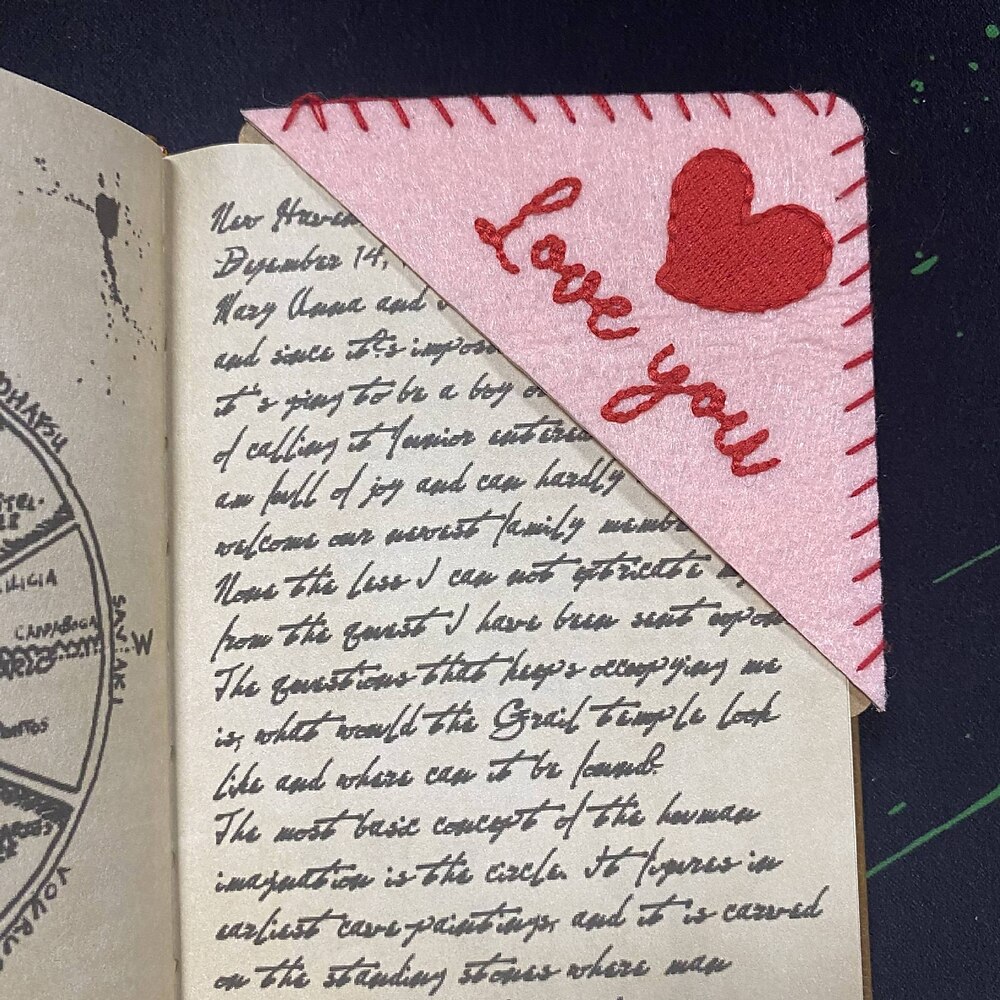 DHARSU
ILICIA
CAPPADOCIA
SANJAKI
W
PONTOS
New Haven
December 14,
Mary Anna and
and since it's impos
it's going to be a boy o
of calling it Junior entered
am full of joy and can hardly
welcome our newest family membe
None the less I can not extricate
from the quest I have been sent upon
The questions that keeps occupying me
is, what would the Grail temple look
like and where can it be found?
The most basic concept of the human
imagination is the circle. It figures in
earliest cave paintings, and it is carved
on the standing stones where man
Love you